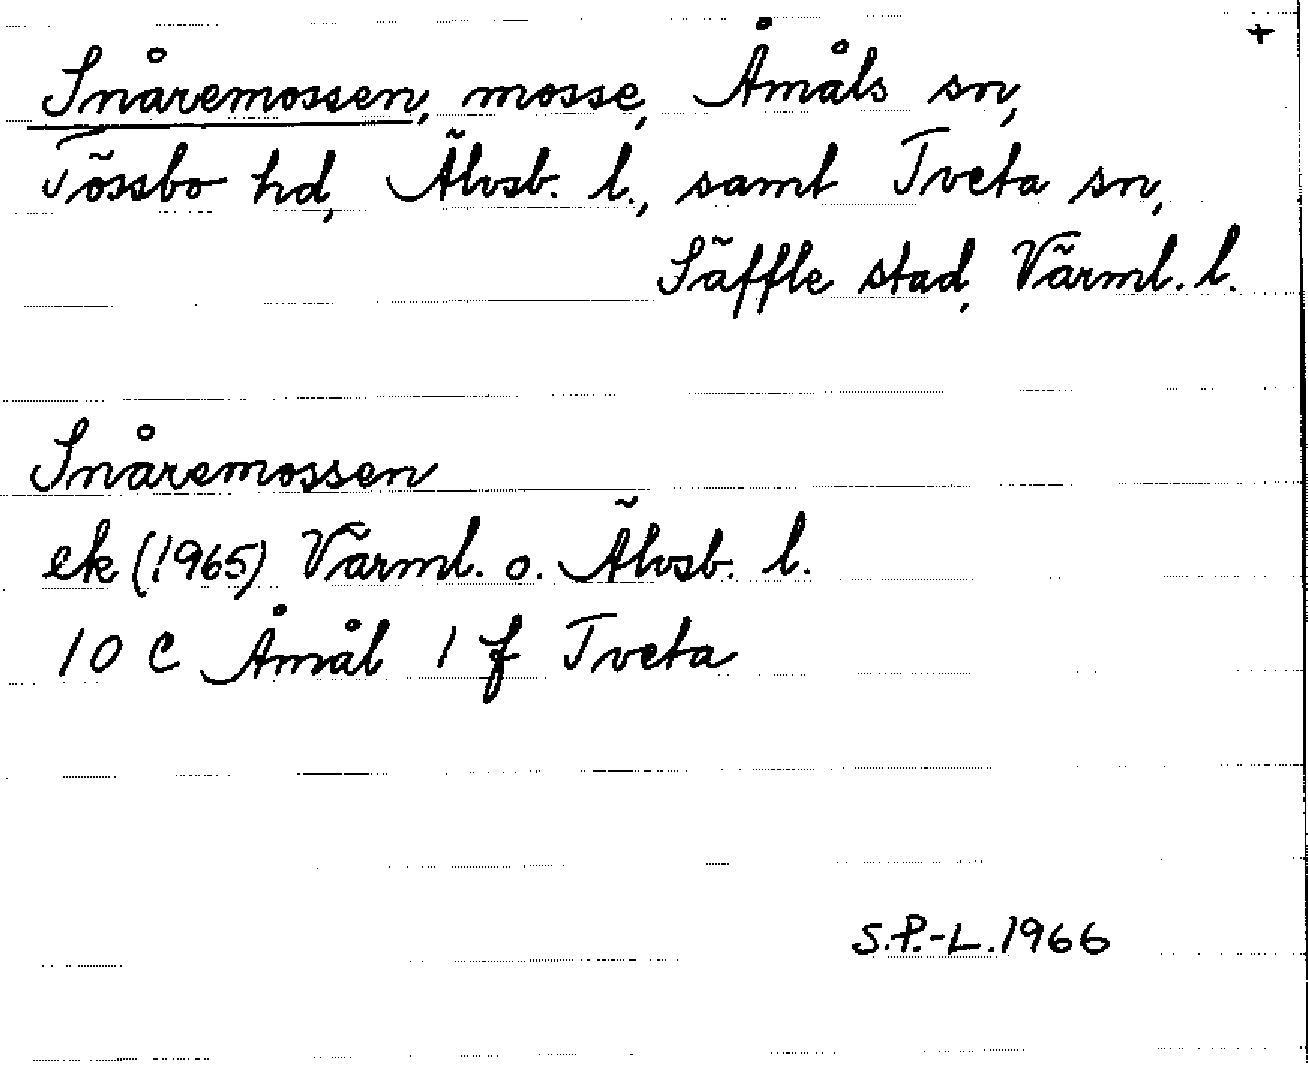 +
Snåremossen, mosse, Åmåls sn,
Tössbo hd, Älvsb. l., samt Tveta sn,
Säffle stad, Värml. l.
Snåremossen
ek (1965) Värml. o. Älvsb. l.
10 c Åmål 1 f Tveta
S.P.-L. 1966